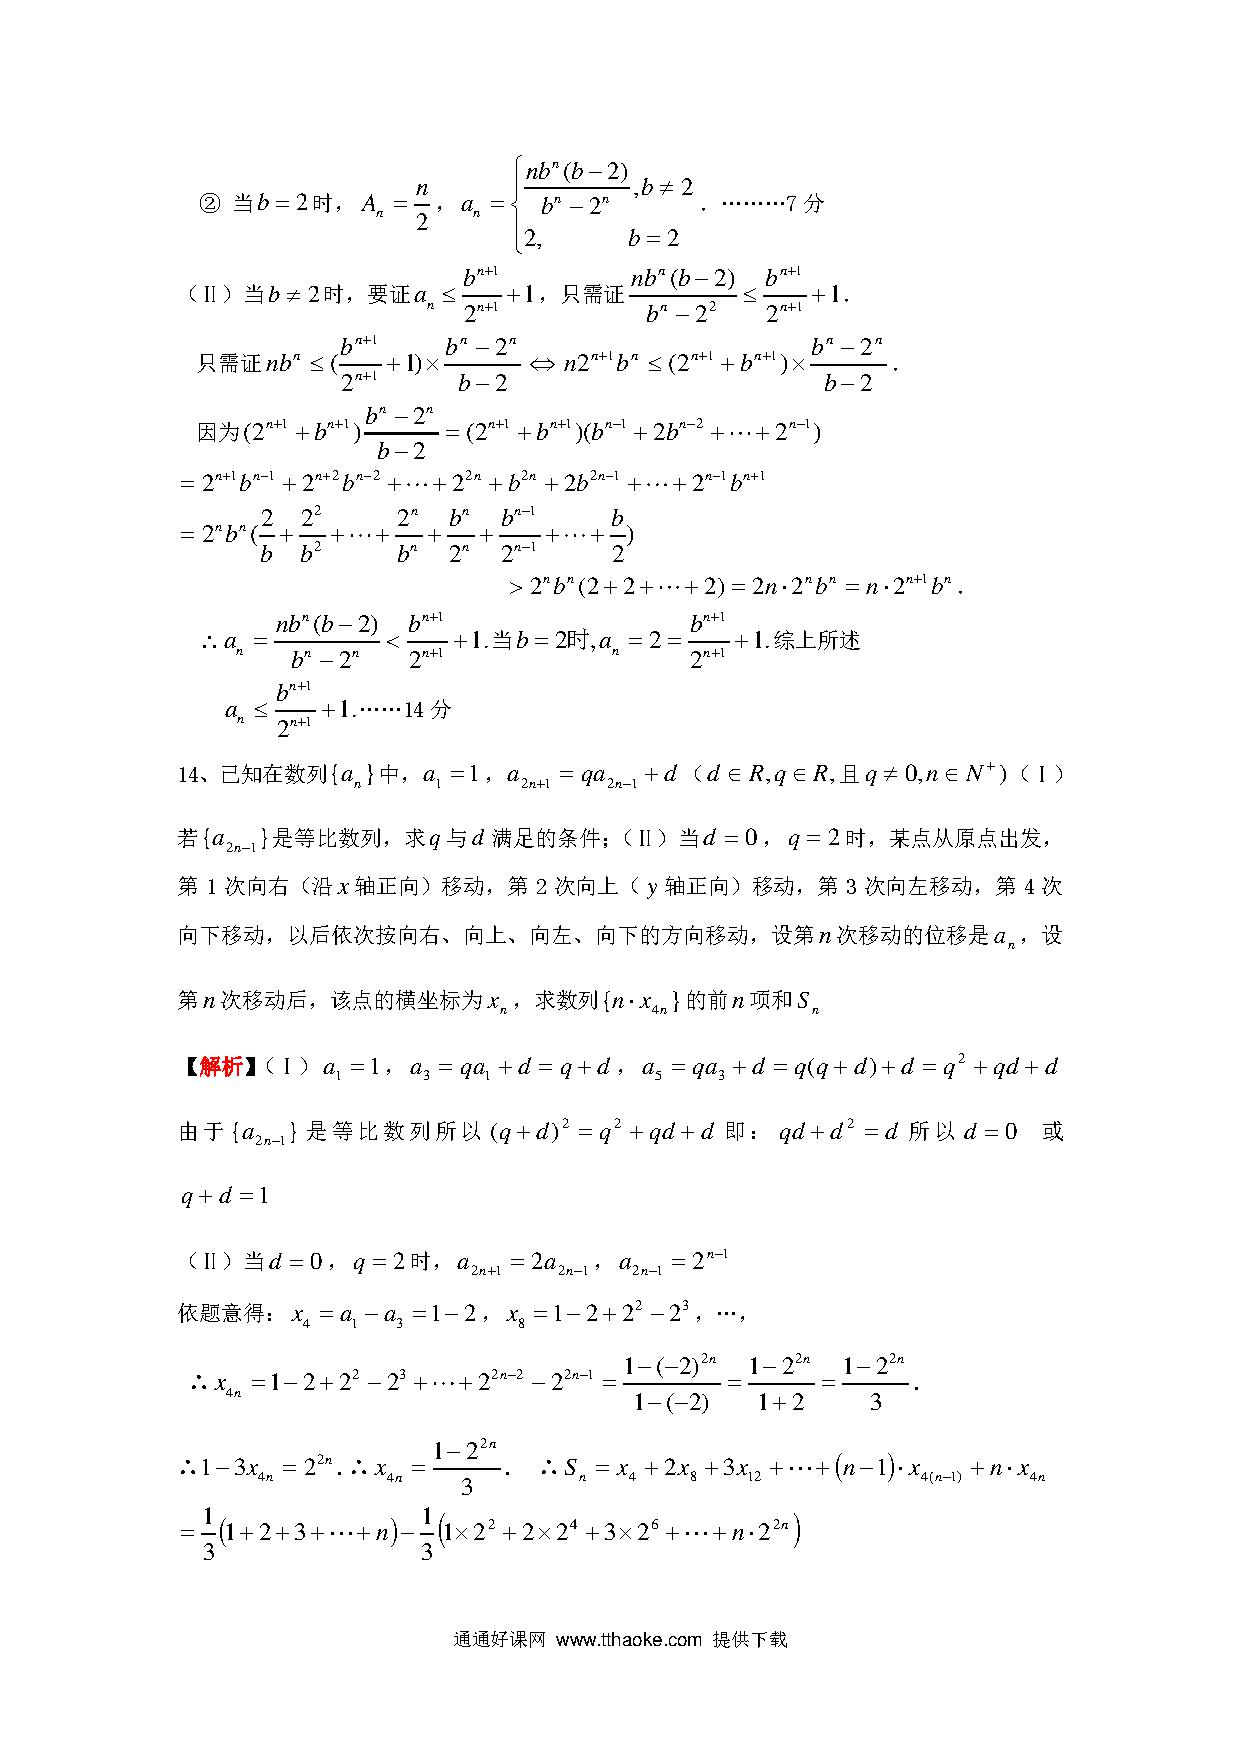 ② 当b=2时，Aₙ = n/2，aₙ = { nbⁿ(b−2)/(bⁿ−2ⁿ), b≠2 ; 2, b=2 ．………7分
（Ⅱ）当b≠2时，要证aₙ ≤ bⁿ⁺¹/2ⁿ⁺¹ +1，只需证 nbⁿ(b−2)/(bⁿ−2²) ≤ bⁿ⁺¹/2ⁿ⁺¹ +1．
只需证nbⁿ ≤ (bⁿ⁺¹/2ⁿ⁺¹ +1)× (bⁿ−2ⁿ)/(b−2) ⇔ n2ⁿ⁺¹bⁿ ≤ (2ⁿ⁺¹+bⁿ⁺¹)× (bⁿ−2ⁿ)/(b−2)．
因为(2ⁿ⁺¹+bⁿ⁺¹) (bⁿ−2ⁿ)/(b−2) = (2ⁿ⁺¹+bⁿ⁺¹)(bⁿ⁻¹+2bⁿ⁻²+⋯+2ⁿ⁻¹)
= 2ⁿ⁺¹bⁿ⁻¹+2ⁿ⁺²bⁿ⁻²+⋯+2²ⁿ+b²ⁿ+2b²ⁿ⁻¹+⋯+2ⁿ⁻¹bⁿ⁺¹
= 2ⁿbⁿ(2/b + 2²/b² +⋯+ 2ⁿ/bⁿ + bⁿ/2ⁿ + bⁿ⁻¹/2ⁿ⁻¹ +⋯+ b/2)
> 2ⁿbⁿ(2+2+⋯+2) = 2n·2ⁿbⁿ = n·2ⁿ⁺¹bⁿ．
∴aₙ = nbⁿ(b−2)/(bⁿ−2ⁿ) < bⁿ⁺¹/2ⁿ⁺¹ +1.当b=2时,aₙ =2= bⁿ⁺¹/2ⁿ⁺¹ +1.综上所述
aₙ ≤ bⁿ⁺¹/2ⁿ⁺¹ +1.……14分
14、已知在数列{aₙ}中，a₁=1，a₂ₙ₊₁ = qa₂ₙ₋₁ + d（d∈R,q∈R,且q≠0,n∈N⁺)（Ⅰ）
若{a₂ₙ₋₁}是等比数列，求q与d满足的条件；（Ⅱ）当d=0，q=2时，某点从原点出发，
第1次向右（沿x轴正向）移动，第2次向上（y轴正向）移动，第3次向左移动，第4次
向下移动，以后依次按向右、向上、向左、向下的方向移动，设第n次移动的位移是aₙ，设
第n次移动后，该点的横坐标为xₙ，求数列{n·x₄ₙ}的前n项和Sₙ
【解析】（Ⅰ）a₁=1，a₃ = qa₁+d = q+d，a₅ = qa₃+d = q(q+d)+d = q²+qd+d
由于{a₂ₙ₋₁}是等比数列所以(q+d)² = q²+qd+d 即：qd+d² = d 所以d=0 或
q+d=1
（Ⅱ）当d=0，q=2时，a₂ₙ₊₁ = 2a₂ₙ₋₁，a₂ₙ₋₁ = 2ⁿ⁻¹
依题意得：x₄ = a₁−a₃ = 1−2，x₈ = 1−2+2²−2³，…，
∴x₄ₙ = 1−2+2²−2³+⋯+2²ⁿ⁻²−2²ⁿ⁻¹ = (1−(−2)²ⁿ)/(1−(−2)) = (1−2²ⁿ)/(1+2) = (1−2²ⁿ)/3．
∴1−3x₄ₙ = 2²ⁿ．∴x₄ₙ = (1−2²ⁿ)/3． ∴Sₙ = x₄+2x₈+3x₁₂+⋯+(n−1)·x₄₍ₙ₋₁₎+n·x₄ₙ
= 1/3 (1+2+3+⋯+n) − 1/3 (1×2²+2×2⁴+3×2⁶+⋯+n·2²ⁿ)
通通好课网 www.tthaoke.com 提供下载